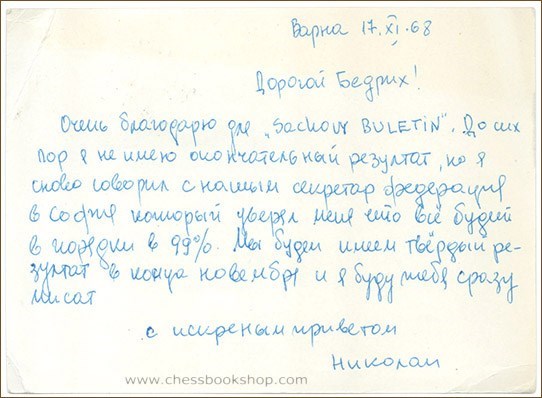 Варна 17.XI.68
Дорогой Бедрих!
Очень благодарю для „Sachovy BULETIN". До сих
пор я не имею окончательный резултат, но я
снова говорил с нашым секретар федерация
в София который уверял меня что всё будет
в порядки в 99%. Мы будем имем твёрдый ре-
зултат в конца новембря и я буду тебя сразу
писат
с искреным приветом
Николай
www.chessbookshop.com